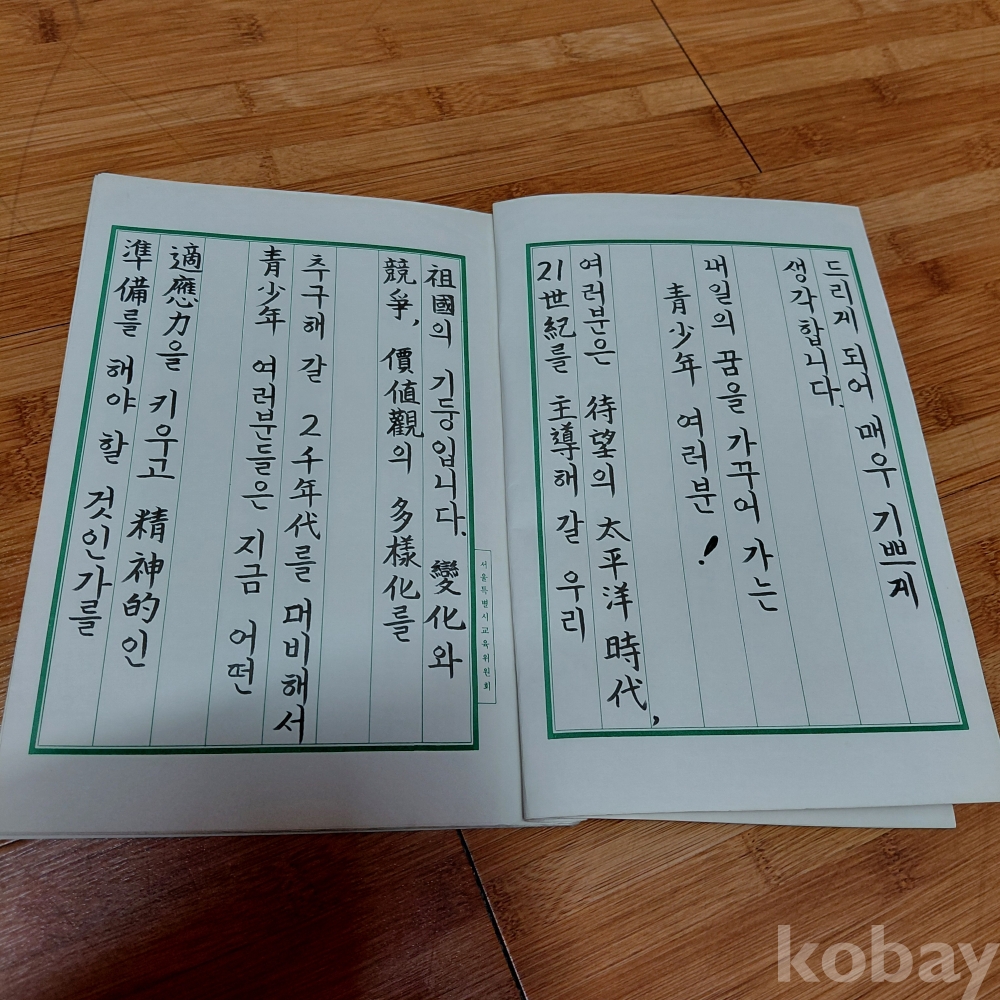 드리게 되어 매우 기쁘게
생각합니다.
내일의 꿈을 가꾸어 가는
靑少年 여러분!
여러분은 待望의 太平洋時代,
21世紀를 主導해 갈 우리
서울특별시교육위원회
祖國의 기둥입니다. 變化와
競爭, 價值觀의 多樣化를
추구해 갈 2千年代를 대비해서
靑少年 여러분들은 지금 어떤
適應力을 키우고 精神的인
準備를 해야 할 것인가를
kobay